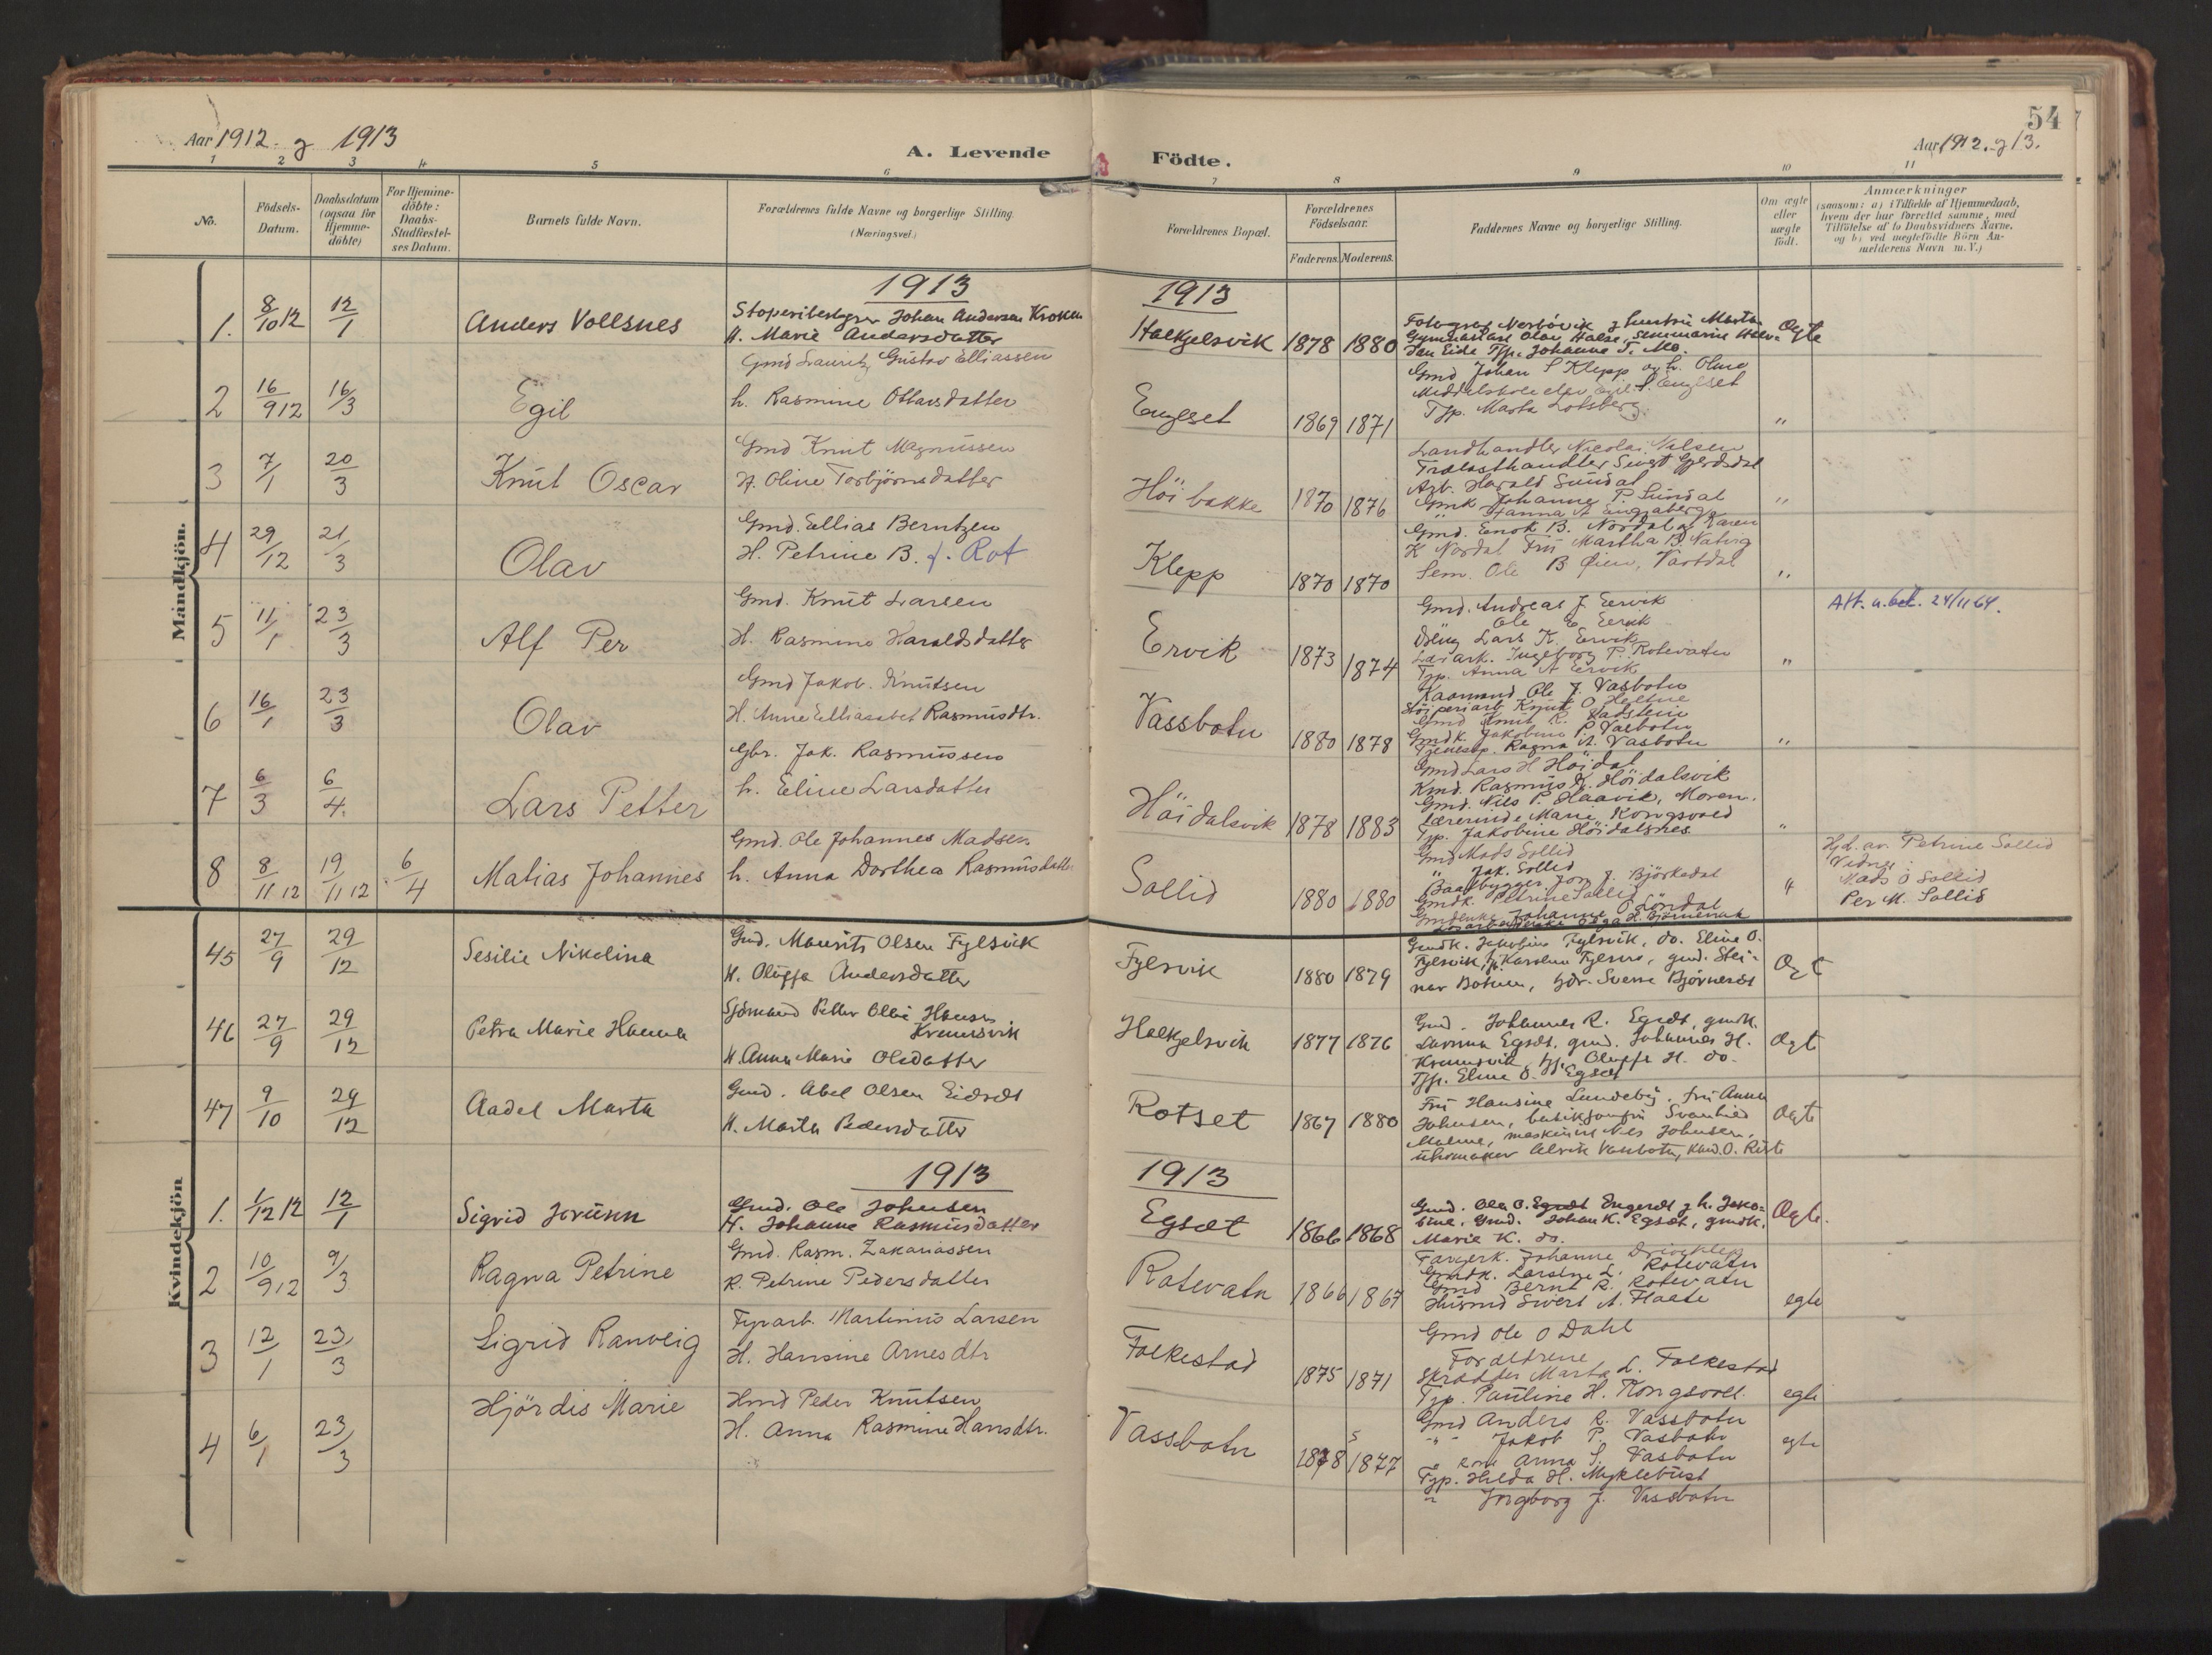 54
Aar 1912. g 1913
A. Levende Födte.
Aar 1912. g 13.
1 2 3 4 5 6 7 8 9 10 11
No.
Födsels-
Datum.
Daabsdatum
(ogsaa for
Hjemme-
döbte)
For Hjemme-
döbte:
Daabs-
Stadfæstel-
ses Datum.
Barnets fulde Navn.
Forældrenes fulde Navne og borgerlige Stilling.
(Næringsvei.)
Forældrenes Bopæl.
Forældrenes
Födselsaar.
Faderens. Moderens.
Faddernes Navne og borgerlige Stilling.
Om ægte
eller
uægte
födt.
Anmærkninger
(saasom: a) i Tilfælde af Hjemmedaab,
hvem der har forrettet samme, med
Tilföielse af to Daabsvidners Navne.
og b) ved uægtefödte Börn An-
melderens Navn m. V.)
Mandkjön.
1913
1913
1. 8/10 12 12/1 Anders Vollsnes
Johan Andersen Kroken
H. Marie Andersdatter
Halkjelsvik 1878 1880
Jan Eide Tjp. Johanne T. Mo.
Ogte
2 16/9 12 16/3 Egil
Gmd Lauritz Gustav Elliassen
h. Rasmine Ottarsdatter
Engeset 1869 1871
Gmd Johan S Klepp og h. Oline
Middelskoleelev S. Engeset
Tjp. Marta Lotsberg.
"
3 7/1 20/3 Knut Oscar
Gmd Knut Magnussen
H. Oline Torbjörnsdatter
Höibakke 1870 1876
Landhandler Nicolai Nilsen
Trælasthandler Sivert Gjerdsdal
Arb. Harald Sundal
Gmk Johanne P. Sundal
"
4 29/12 21/3 Olav
Gmd. Ellias Berntzen
H. Petrine B. f. Rot
Klepp 1870 1870
Gmd. Enok B. Nordal og Karen
K Nordal Fru Martha B.
Sem. Ole B Öien, Vartdal
"
5 11/1 23/3 Alf Per
Gmd. Knut Larsen
H. Rasmine Haraldsdatter
Ervik 1873 1874
Gmd. Andreas J. Ervik
Ole E. Ervik
Lars K. Ervik
Ingeborg P. Rotevatn
Tjp. Anna A Ervik
"
Att. u. bet. 24/11 64.
6 16/1 23/3 Olav
Gmd Jakob. Knutsen
H. Anne Elliasabet Rasmusdtr.
Vassbotn 1880 1878
Kaarmand Ole J. Vasbotn
Knut O.
Gmd Knut R. Vadstein
Gmdk. Jakobine P. Vasbotn
Tjenestp. Ragna A. Vasbotn
"
7 6/3 6/4. Lars Petter
Gbr. Jak. Rasmussen
h. Eline Larsdatter
Höidalsvik 1878 1883
Gmd Lars H Höidal
Kmd. Rasmus K. Höidalsvik
Gmd. Nils P. Haavik, Moren.
Lærerinde Marie Kongsvold
Tjp. Jakobine Höidalsnes
"
8 8/11 12 19/11 12 6/4 Matias Johannes
Gmd. Ole Johannes Madsen
h. Anna Dorthea Rasmusdatter
Sollid 1880 1880
Gmd Mads Sollid
" Jak. Sollid
Baadbygger Jon J. Björkedal
Gmdk. Petrine Sollid
Johanne O Löndal
"
Hjd. av Petrine Sollid
Vidner:
Mads O Sollid
Per M. Sollid
Kvindekjön
45 27/9 29/12 Sesilie Nikolina
Gmd. Maurits Olsen Fylsvik
H. Oluffa Andersdatter
Fylsvik 1880 1879
Gmdk. Jakobine Fylsvik, do. Eline O.
Fylsvik, tjp. Karoline Fylsvik, gmd. Stei-
nar Botnen, gdr. Sverre Björneset
Ogt
46 27/9 29/12 Petra Marie Hanna
Sjömand Petter Olai Hansen
Kremsvik
H. Anna Marie Olsdatter
Halkjelsvik 1877 1876
Gmd. Johannes R. Egset, gmdk.
Lavina Egset, gmd. Johannes H.
Kremsvik, tjp. Oluffa H. do.
Tjp. Eline O. Egset
Ogt
47 9/10 29/12 Aadel Marta
Gmd. Abel Olsen Eidset
H. Marta Pedersdatter
Rotset 1867 1880
Fru Hansine Lundeby, fru Anna
Johnsen, butikjomfru Svanhild
Malme, maskinist Nils Johnsen,
uhrmaker Alvik Vassbotn, kmd. O. Riste
Ogte
1913
1913
1. 1/12 12 12/1 Sigrid Jorunn
Gmd. Ole Johnsen
H. Johanne Rasmusdatter
Egset 1866 1868
Gmd. Ole O. Egset Engeset g h. Jako-
bine. Gmd. Johan K. Egset, gmdk.
Marie K. do.
Ogte.
2 10/9 12 9/3 Ragna Petrine
Gmd. Rasm. Zakariassen
K. Petrine Pedersdatter
Rotevatn 1866 1867
Johanne
Gmdk. Larsine L. Rotevatn
Gmd Bernt R. Rotevatn
Husmd Sivert A. Flaate
egte
3 12/1 23/3 Sigrid Ranveig
Fyrarb. Martinus Larsen
H. Hansine Arnesdtr
Folkestad 1875 1871
Gmd Ole O Dahl
Forældrene
Skrædder Marta L. Folkestad
Tjp. Pauline H. Kongsvoll.
egte
4 6/1 23/3 Hjördis Marie
Hmd Peder Knutsen
H. Anna Rasmine Hansdtr.
Vassbotn 1878 1877
Gmd Anders R. Vassbotn
" Jakob P. Vasbotn
Anna S. Vasbotn
Tjp. Hilda H. Myklebust
" Ingborg J. Vassbotn
egte